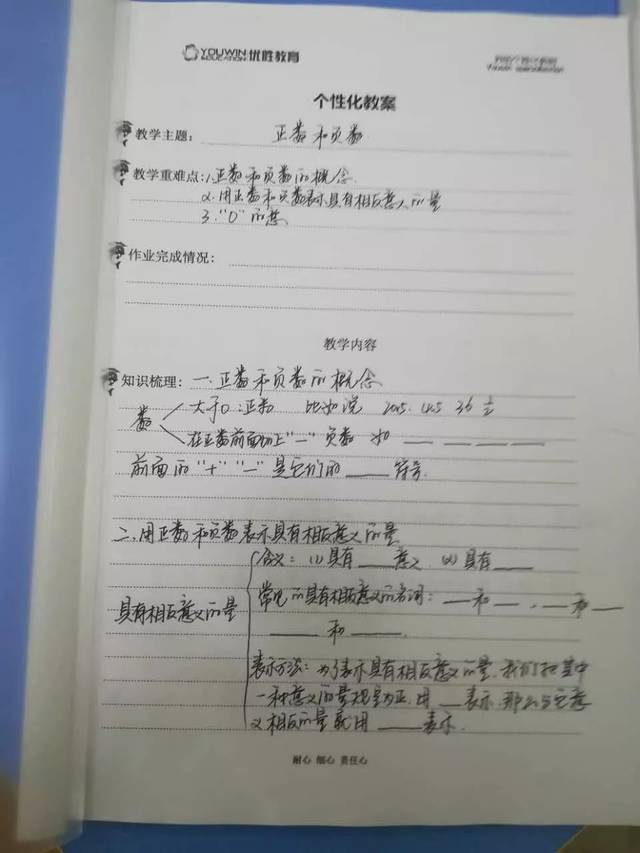 YOUWIN EDUCATION 优胜教育
个性化教案
教学主题: 正数和负数
教学重难点: 1.正数和负数的概念
2.用正数和负数表示具有相反意义的量
3."0"的意
作业完成情况:
教学内容
知识梳理: 一.正数和负数的概念
数 大于0:正数 比如说 2015. 4.5 36 1/2
在正数前面加上"—" 负数 如
前面的"+""—"是它们的____符号.
二.用正数和负数表示具有相反意义的量
具有相反意义的量
含义: (1)具有____意义 (2)具有____
常见的具有相反意义的名词: __和__.__和__
____和____.
表示方法: 为了表示具有相反意义的量,我们把其中
一种意义的量规定为正.用__表示.那么与它意
义相反的量就用____表示.
耐心 细心 责任心